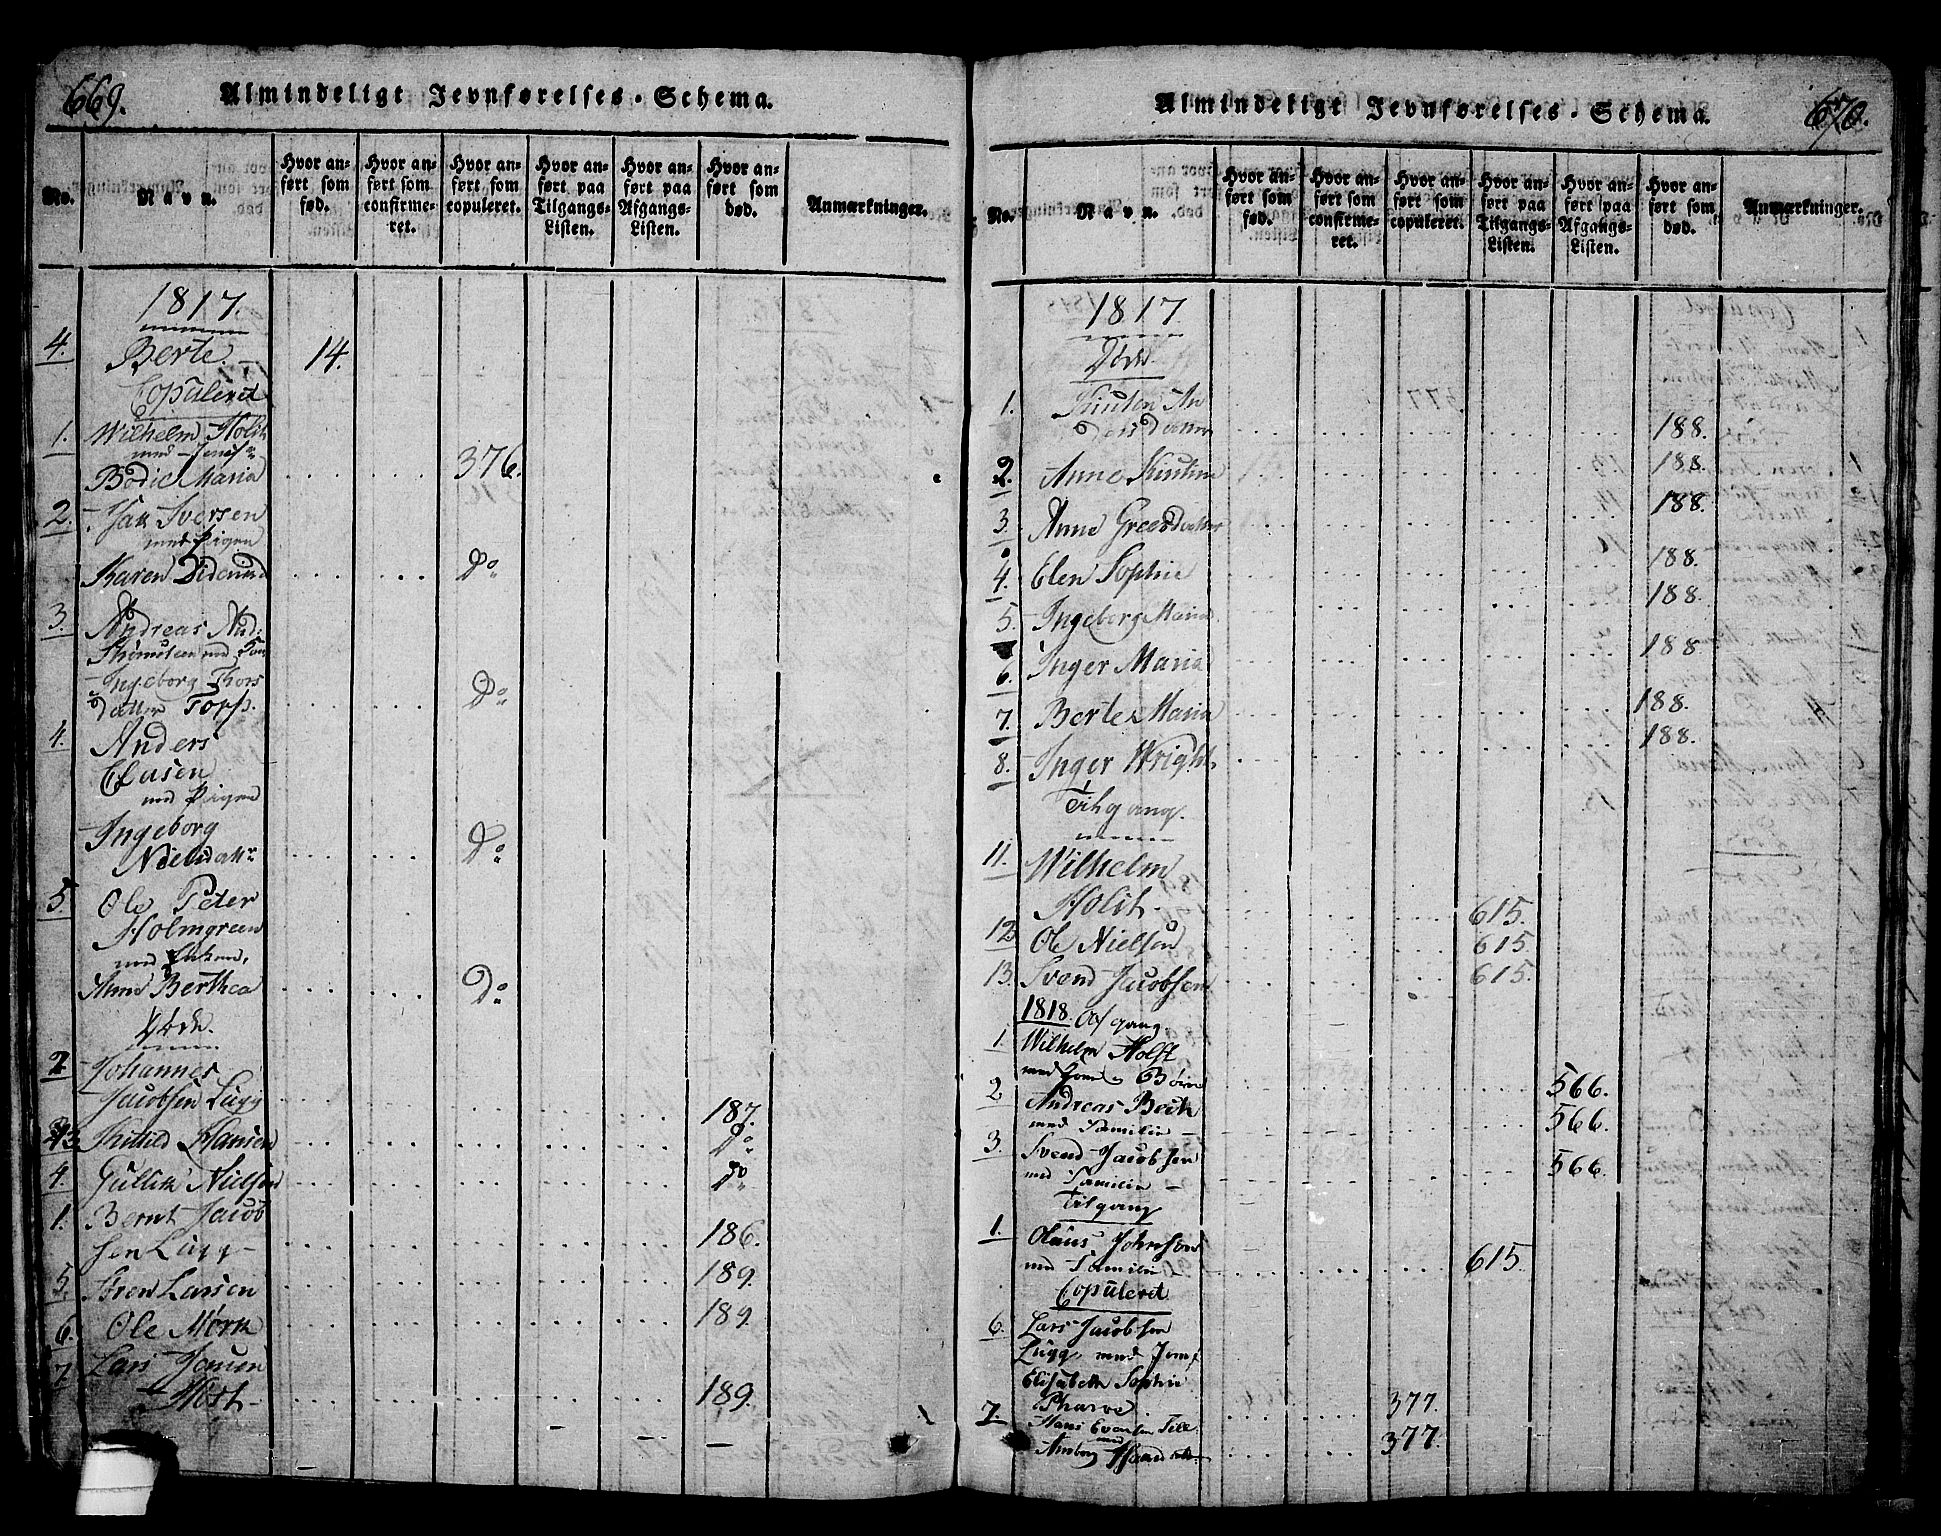 669.
Almindeligt Jevnførelses-Schema.
No.
Navn.
Hvor an-
ført som
fød.
Hvor an-
ført som
confirme-
ret.
Hvor an-
ført som
copuleret.
Hvor an-
ført paa
Tilgangs-
Listen.
Hvor an-
ført paa
Afgangs-
Listen.
Hvor an-
ført som
død.
Anmærkninger.
1817.
4. Berte 14.
Copuleret
1. Wilhelm Holst
med Jomf
Bodil Maria 376.
2. Iver Iversen
med Pigen
Karen Didemid Do
3. Andreas And:
med
Ingeborg Thors
datter Torp. Do
4. Anders
Clasen
med Pigen
Ingeborg
Nielsdattr Do
5. Ole Peter
Holmgreen
med Enken
Anne Berthea Do
Død.
2 Johannes
Jacobsen Lugg 187.
3 Hansen Do
4. Gullik Nielsen Do
1. Bernt Jacob
sen Lugg 186.
5. Sören Larsen 189.
6. Ole Mørk 189.
7 Lars Jensen
Høst 189.
670.
Almindeligt Jevnførelses-Schema.
No.
Navn.
Hvor an-
ført som
fød.
Hvor an-
ført som
confirme-
ret.
Hvor an-
ført som
copuleret.
Hvor an-
ført paa
Tilgangs-
Listen.
Hvor an-
ført paa
Afgangs-
Listen.
Hvor an-
ført som
død.
Anmærkninger.
1817
Død.
1. Kirsten An
dersdatter 188.
2. Anne Kirstine 188.
3. Anne Greersdatter 188.
4. Elen Sophie 188.
5. Ingeborg Maria 188.
6. Inger Maria 188.
7. Berte Maria 188.
8. Inger Wright 188.
Tilgang.
11. Wilhelm
Holst 615.
12 Ole Nielsen 615.
13. Svend Jacobsen 615.
1818. Afgang
1. Wilhelm Holst
med Børn 566.
2 Andreas Beck
med Familie 566.
3. Svend Jacobsen
med Familie 566.
Tilgang
1. Olaus Johnsen
med Familie 615
Copuleret
6. Lars Jacobsen
Lugg med Jomf
Elisabeth Sophie
Pharoe 377.
7. Hans Evensen
med
377.